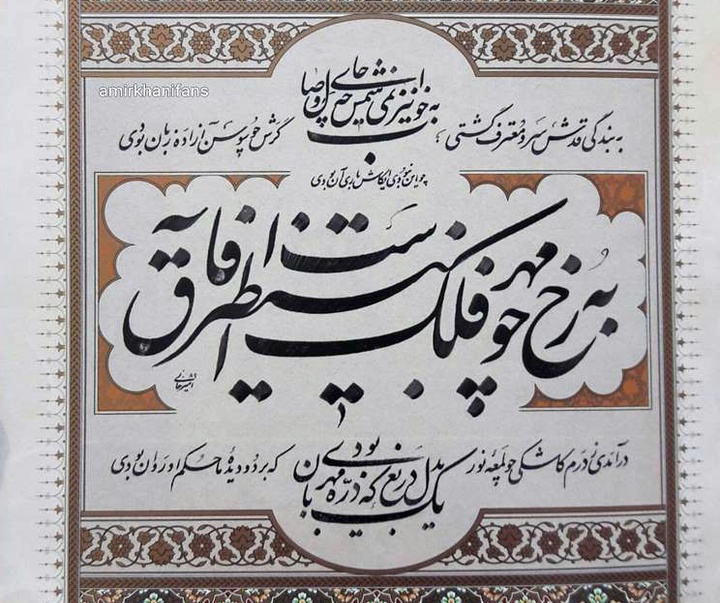 amirkhanifans
به خواب نیز نمی‌بینمش چه جای وصال
به بندگی قدش سرو معترف گشتی
گرش چو سوسن آزاده زبان بودی
چو این نبودی ایکاش باری آن بودی
به رخ چو مهر فلک بی‌نظیر آفاق است
امیرخانی
درآمدی ز درم کاشکی چو لمعه نور
که بر دو دیده ما حکم او روان بودی
بدل دریغ که یک ذره مهربان بودی